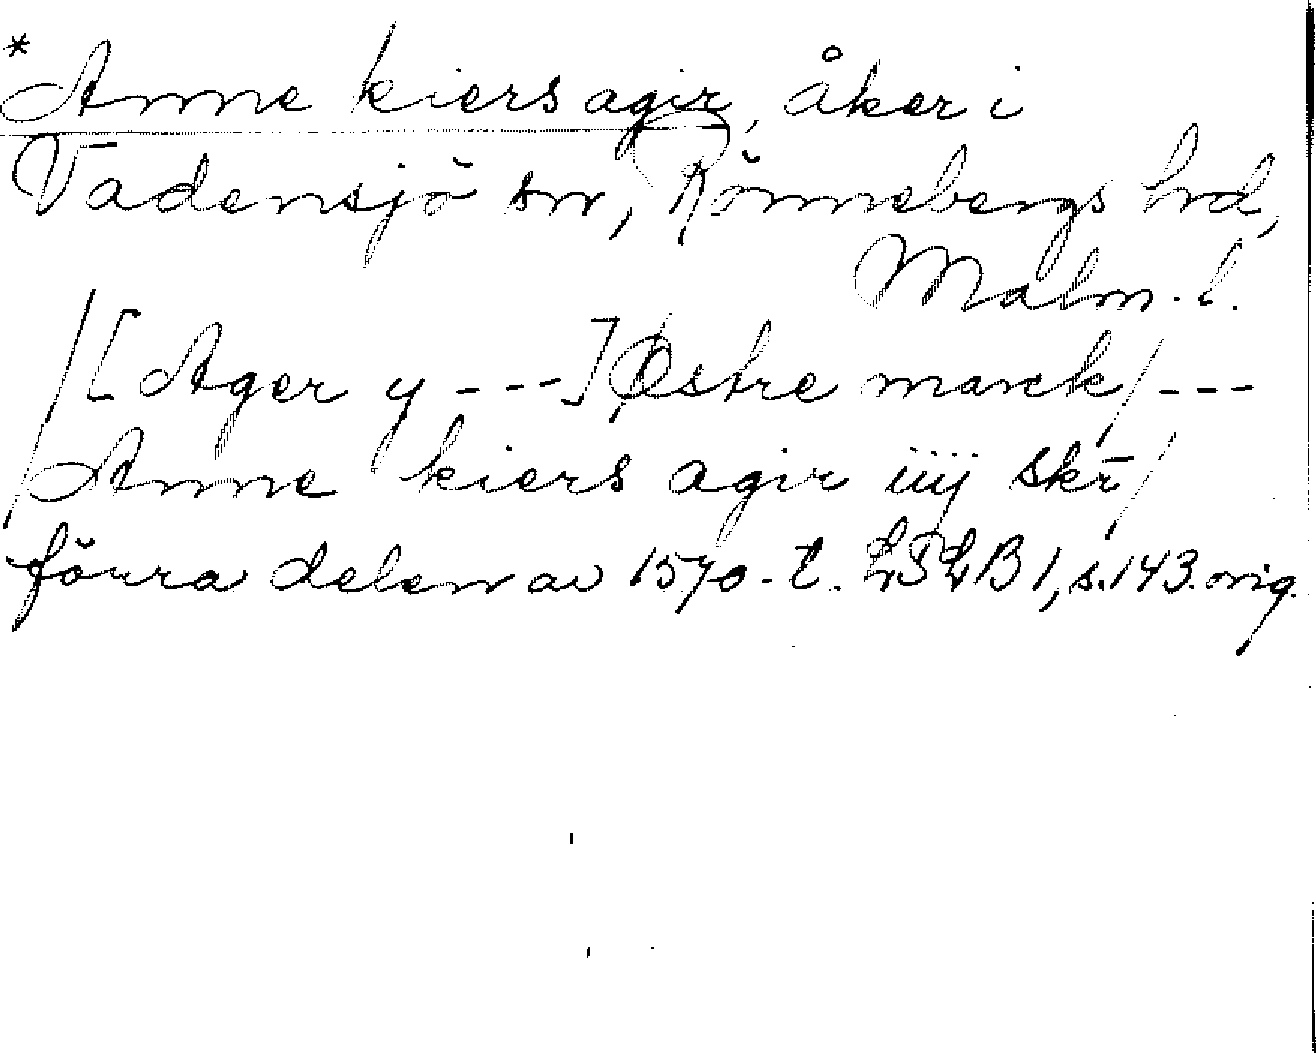 *Anne kiers agir, åker i
Vadensjö sn, Rönnebergs hd,
Malm. l.
/[Ager y ---] Østre marck/ ---
Anne kiers agir iiij skr̄/
förra delen av 1570-t. LTLB 1, s. 143. orig.